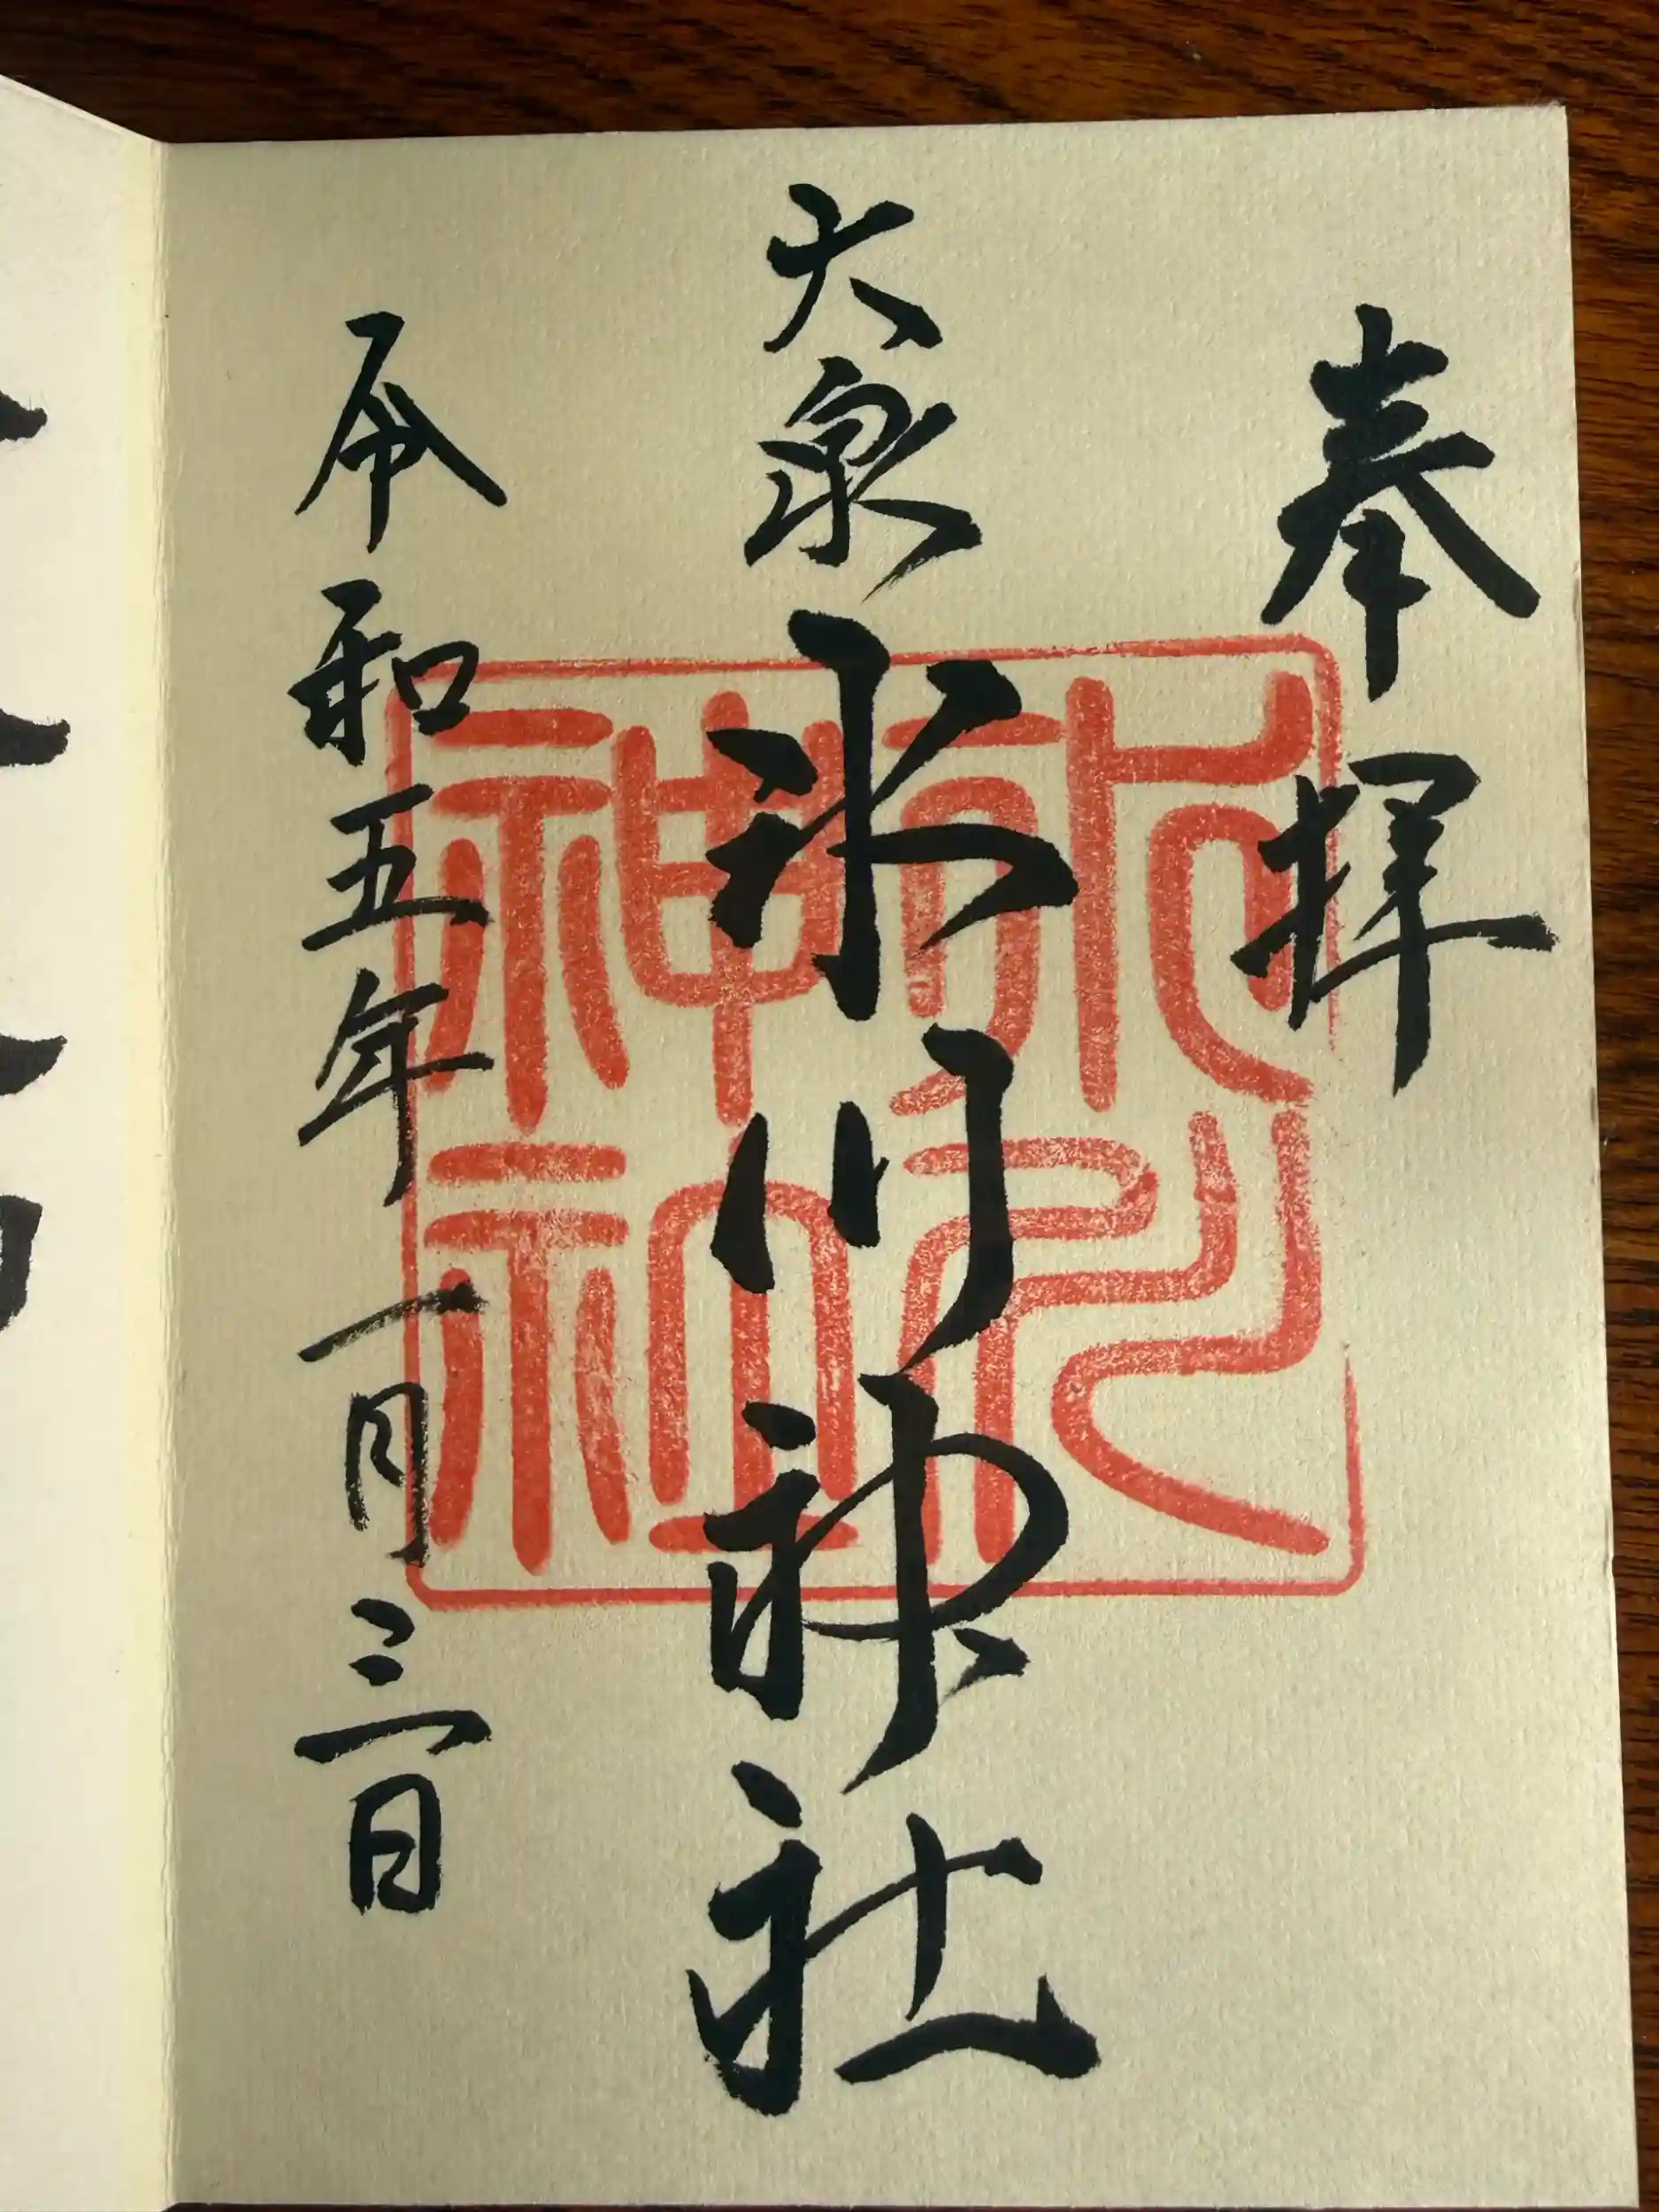 奉拝
大泉
氷川神社
令和五年一月三日
氷川神社